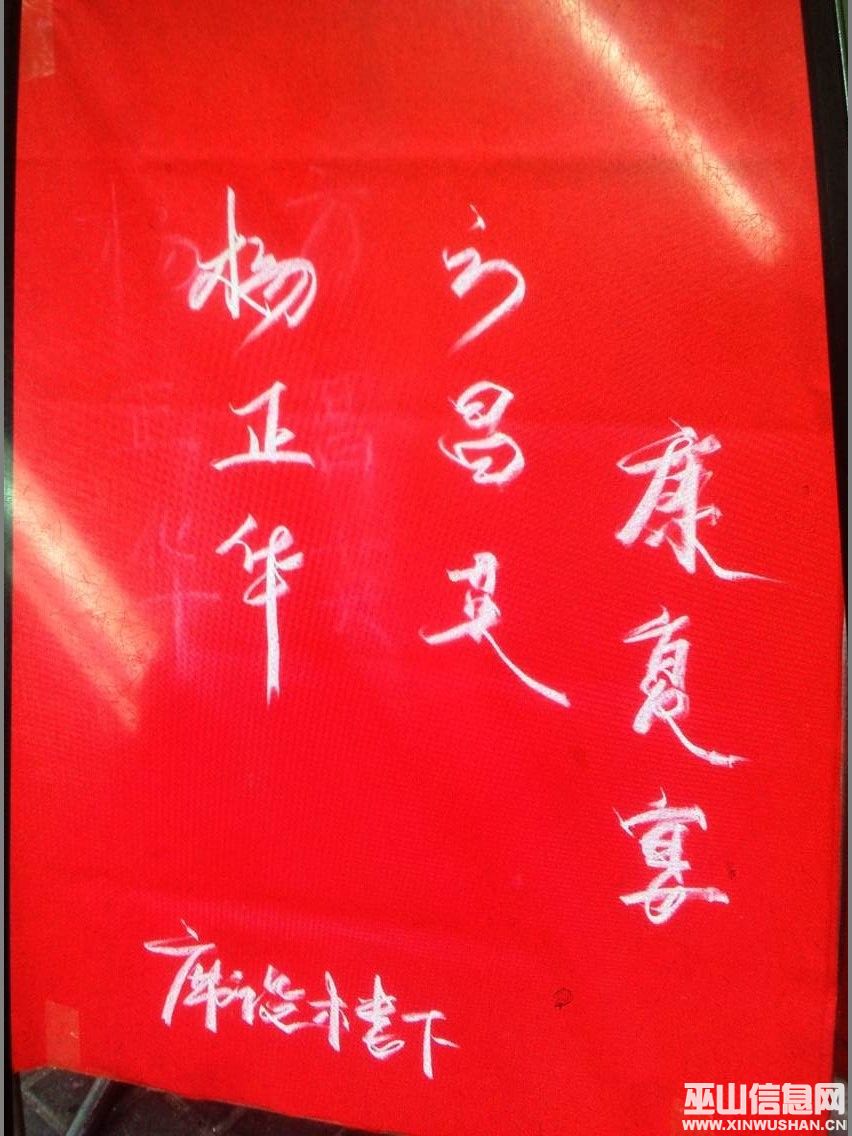 杨正华
方昌英
康复宴
席设楼下
巫山信息网
WWW.XINWUSHAN.CN